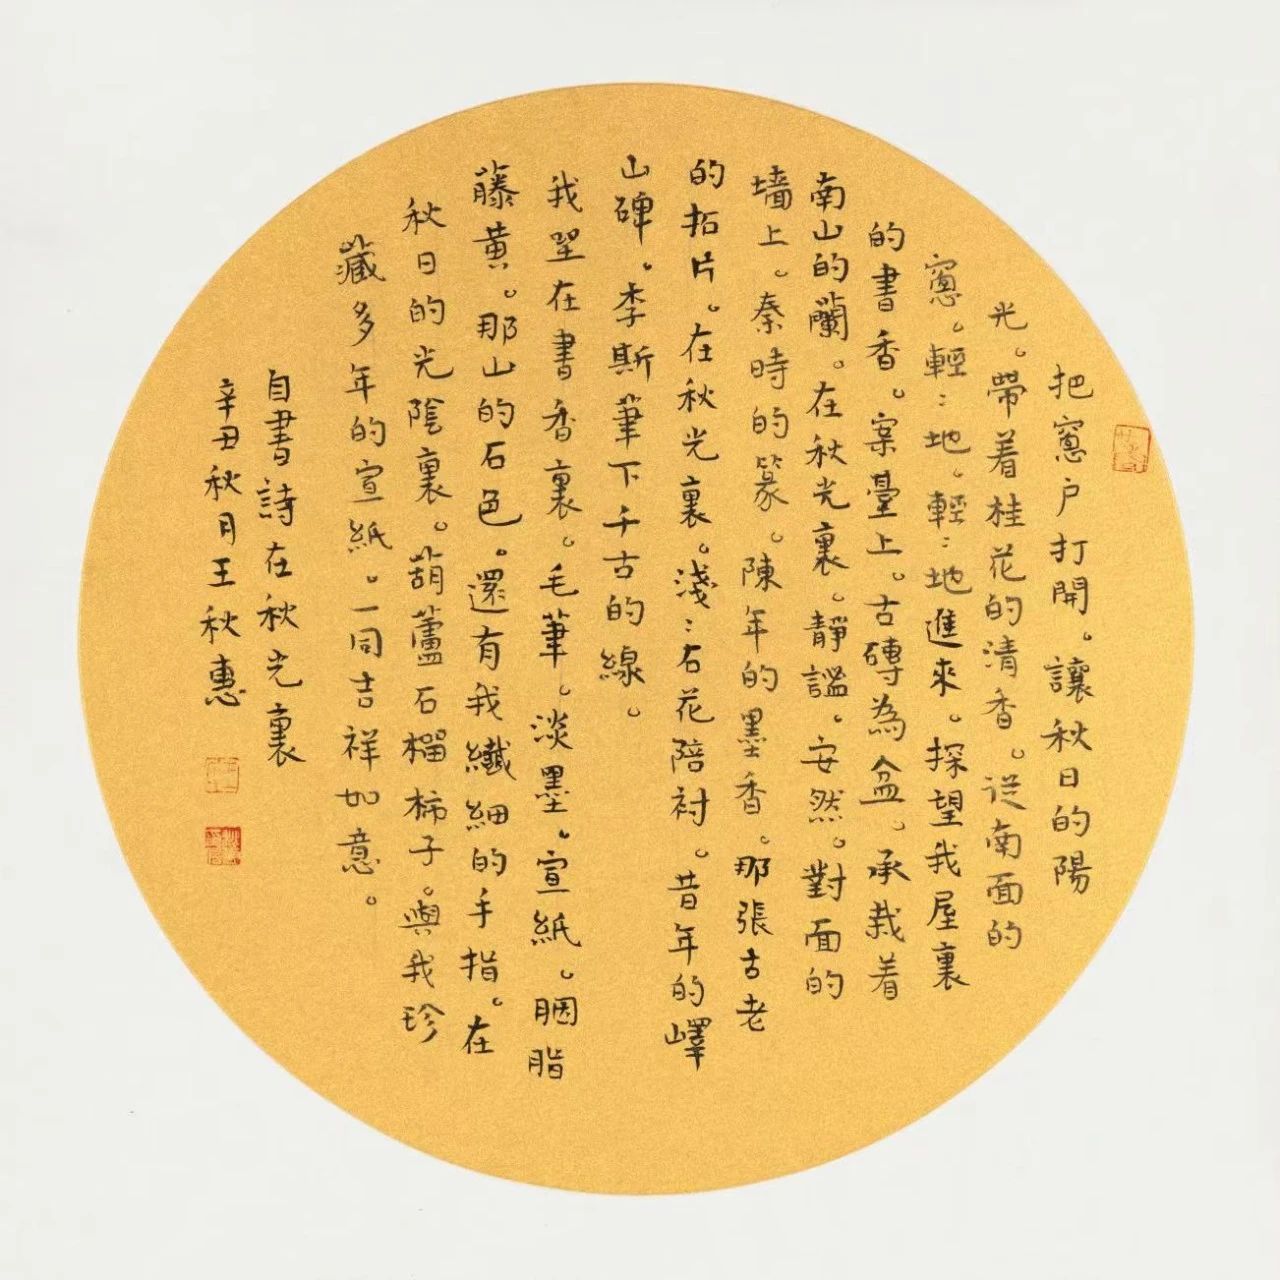 把窻户打開。讓秋日的陽
光。帶着桂花的清香。從南面的
窻。輕〻地。輕〻地進來。探望我屋裏
的書香。案臺上。古磚為盆。承栽着
南山的蘭。在秋光裏。靜謐。安然。對面的
墙上。秦時的篆。陳年的墨香。那張古老
的拓片。在秋光裏。淺〻石花陪衬。昔年的嶧
山碑。李斯筆下千古的線。
我坐在書香裏。毛筆。淡墨。宣紙。胭脂
藤黄。那山的石色。還有我纖細的手指。在
秋日的光陰裏。葫蘆石榴柿子。與我珍
藏多年的宣紙。一同吉祥如意。
自書詩在秋光裏
辛丑秋月王秋惠